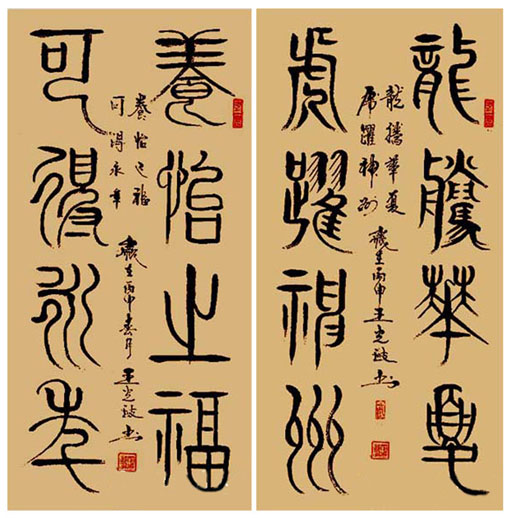 龍騰華夏
虎躍神州
龍騰華夏
虎躍神州
歲在丙申王
養怡之福
可得永年
養怡之福
可得永年
歲在丙申春月王